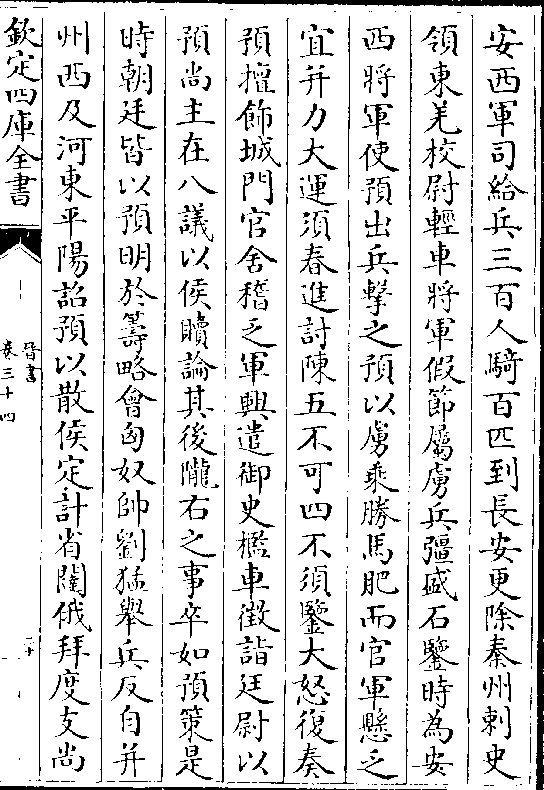 安西軍司給兵三百人騎百匹到長安更除秦州刺史
領東羌校尉輕車將軍假節屬虜兵彊盛石鑒時為安
西將軍使預出兵擊之預以虜乘勝馬肥而官軍懸乏
宜并力大運須春進討陳五不可四不須鑒大怒復奏
預擅飾城門官舍稽乏軍興遣御史檻車徵詣廷尉以
預尚主在八議以侯贖論其後隴右之事卒如預策是
時朝廷皆以預明於籌略會匈奴帥劉猛舉兵反自并
州西及河東平陽詔預以散侯定計省闥俄拜度支尚
欽定四庫全書
晉書
卷三十四